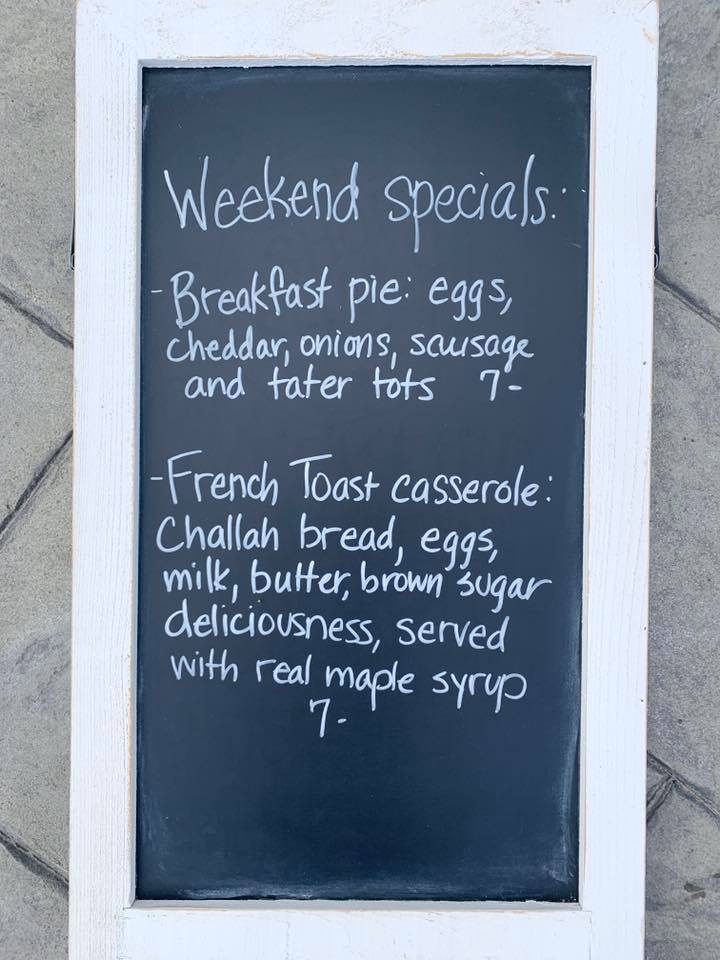 Weekend specials:
- Breakfast pie: eggs,
cheddar, onions, sausage
and tater tots 7-
- French Toast casserole:
Challah bread, eggs,
milk, butter, brown sugar
deliciousness, served
with real maple syrup
7-